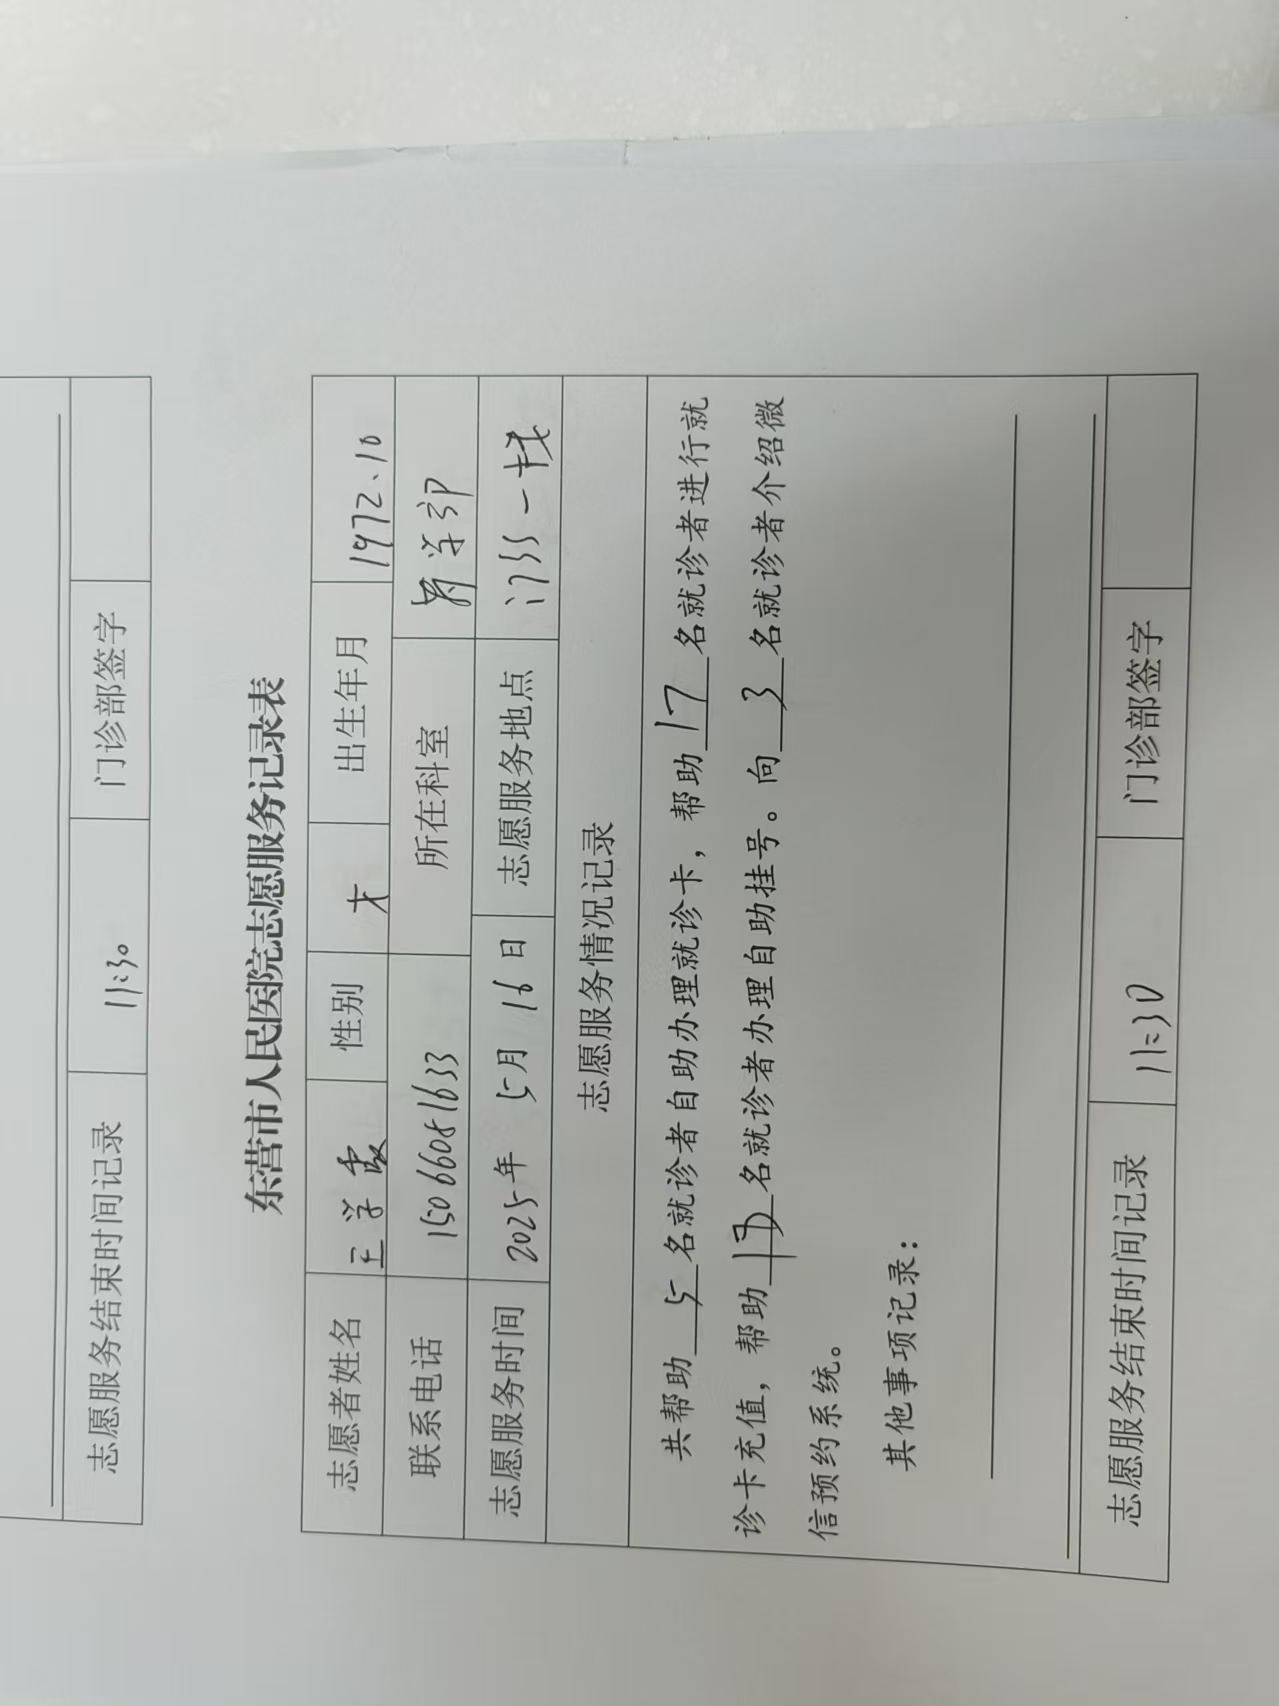 志愿服务结束时间记录 11:30 门诊部签字
东营市人民医院志愿服务记录表
志愿者姓名 王学霞 性别 女 出生年月 1972、10
联系电话 15066081633 所在科室
志愿服务时间 2025年 5月 16日 志愿服务地点 门诊一楼
志愿服务情况记录
共帮助 5 名就诊者自助办理就诊卡，帮助 17 名就诊者进行就
诊卡充值，帮助 名就诊者办理自助挂号。向 3 名就诊者介绍微
信预约系统。
其他事项记录：
志愿服务结束时间记录 11:30 门诊部签字